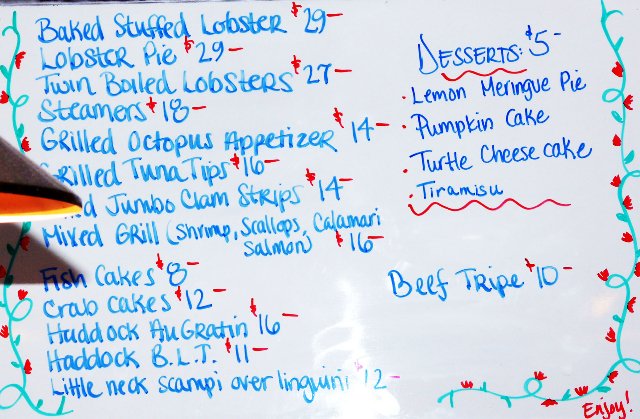 Baked Stuffed Lobster $29-
Lobster Pie $29-
Twin Boiled Lobsters $27-
Steamers $18-
Grilled Octopus Appetizer $14-
Grilled Tuna Tips $16-
Jumbo Clam Strips $14-
Mixed Grill (Shrimp, Scallops, Calamari
Salmon) $16-
Fish Cakes $8-
Crab Cakes $12-
Huddock AuGratin $16-
Haddock B.L.T. $11-
Little neck scampi over linguini $12-
Desserts: $5-
• Lemon Meringue Pie
• Pumpkin Cake
• Turtle Cheesecake
• Tiramisu
Beef Tripe $10-
Enjoy!